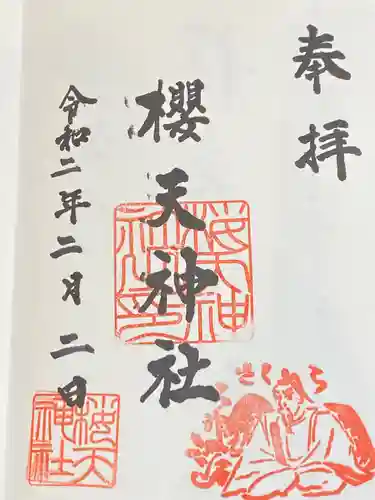 奉拝
櫻天神社
令和二年二月二日
さくら
櫻天神社